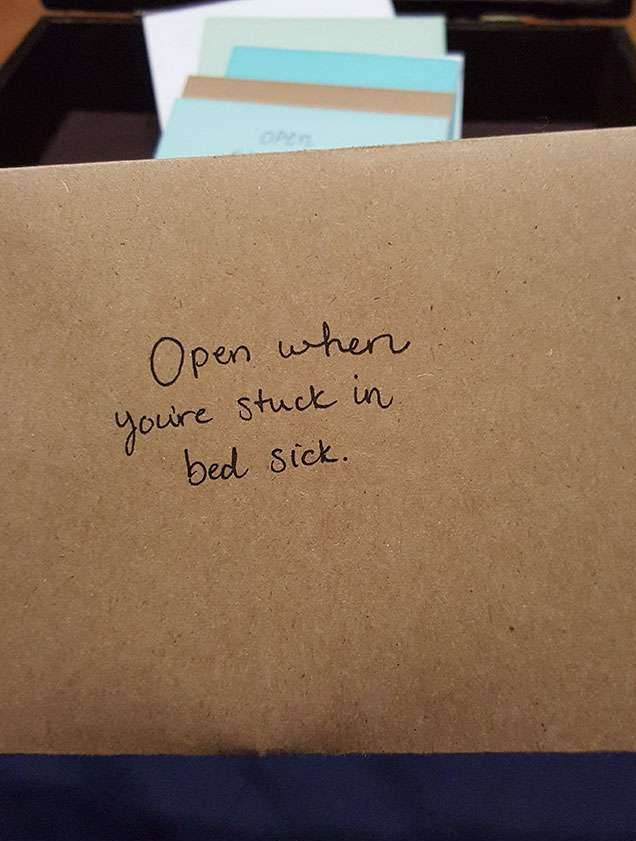 open
Open when
you're stuck in
bed sick.